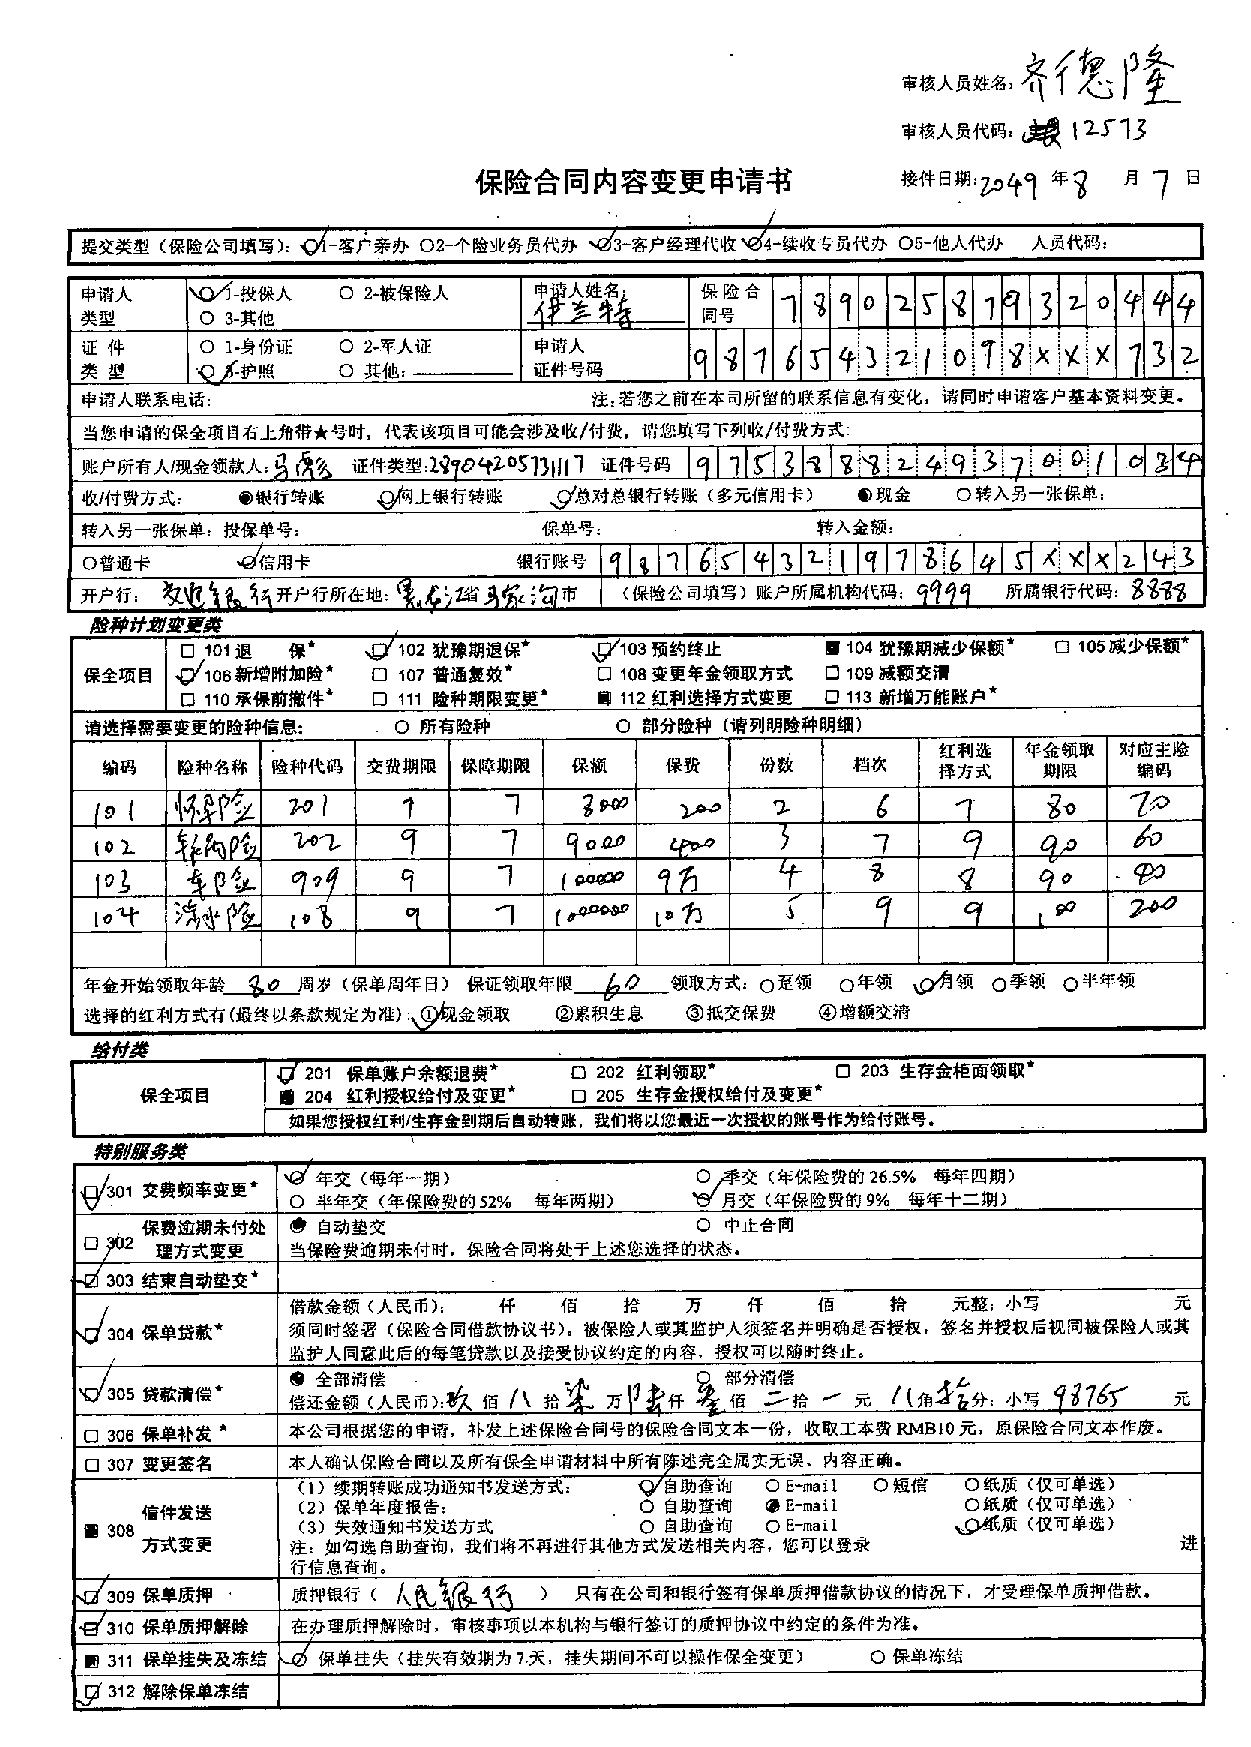 审核人员姓名：齐德隆
审核人员代码：12573
保险合同内容变更申请书
接件日期：2049年8月7日
提交类型（保险公司填写）：○1-客户亲办 ○2-个险业务员代办 ○3-客户经理代收 ○4-续收专员代办 ○5-他人代办 人员代码：
申请人类型 ○1-投保人 ○2-被保险人 ○3-其他 申请人姓名：伊兰特 保险合同号 789025879320444
证件类型 ○1-身份证 ○2-军人证 ○3-护照 ○其他： 申请人证件号码 987654321098XXX732
申请人联系电话： 注：若您之前在本司所留的联系信息有变化，请同时申请客户基本资料变更。
当您申请的保全项目右上角带★号时，代表该项目可能会涉及收/付费，请您填写下列收/付费方式：
账户所有人/现金领款人：马虎 证件类型：28904205731117 证件号码 975388824937001034
收/付费方式： ●银行转账 ○网上银行转账 ○总对总银行转账（多元信用卡） ●现金 ○转入另一张保单：
转入另一张保单：投保单号： 保单号： 转入金额：
○普通卡 ○信用卡 银行账号 987654321978645XXX243
开户行：交通银行 开户行所在地：黑龙江省马家沟市 （保险公司填写）账户所属机构代码：9999 所属银行代码：8888
险种计划变更类
保全项目
□ 101退 保* □ 102 犹豫期退保* □103 预约终止 ■ 104 犹豫期减少保额* □ 105减少保额*
□ 106新增附加险* □ 107 普通复效* □ 108 变更年金领取方式 □ 109 减额交清
□ 110 承保前撤件* □ 111 险种期限变更* ■ 112 红利选择方式变更 □ 113 新增万能账户*
请选择需要变更的险种信息： ○ 所有险种 ○ 部分险种（请列明险种明细）
编码 险种名称 险种代码 交费期限 保障期限 保额 保费 份数 档次 红利选择方式 年金领取期限 对应主险编码
101 怀孕险 201 7 7 8000 200 2 6 7 80 70
102 202 9 7 9000 400 3 7 9 90 60
103 车险 909 9 7 100000 9万 4 8 8 90 80
104 108 9 7 1000000 10万 5 9 9 100 200
年金开始领取年龄 80 周岁（保单周年日） 保证领取年限 60 领取方式：○趸领 ○年领 ○月领 ○季领 ○半年领
选择的红利方式有(最终以条款规定为准)：①现金领取 ②累积生息 ③抵交保费 ④增额交清
给付类
保全项目
□ 201 保单账户余额退费* □ 202 红利领取* □ 203 生存金柜面领取*
■ 204 红利授权给付及变更* □ 205 生存金授权给付及变更*
如果您授权红利/生存金到期后自动转账，我们将以您最近一次授权的账号作为给付账号。
特别服务类
□301 交费频率变更* ○ 年交（每年一期） ○ 季交（年保险费的26.5% 每年四期）
○ 半年交（年保险费的52% 每年两期） ○ 月交（年保险费的9% 每年十二期）
□302 保费逾期未付处理方式变更 ● 自动垫交 ○ 中止合同
当保险费逾期未付时，保险合同将处于上述您选择的状态。
□ 303 结束自动垫交*
□ 304 保单贷款* 借款金额（人民币）： 仟 佰 拾 万 仟 佰 拾 元整；小写 元
须同时签署（保险合同借款协议书）。被保险人或其监护人须签名并明确是否授权，签名并授权后视同被保险人或其
监护人同意此后的每笔贷款以及接受协议约定的内容，授权可以随时终止。
□ 305 贷款清偿* ● 全部清偿 ○ 部分清偿
偿还金额（人民币）：玖佰八拾柒万陆仟叁佰二拾一元八角拾分；小写 98765 元
□ 306 保单补发* 本公司根据您的申请，补发上述保险合同号的保险合同文本一份，收取工本费RMB10元，原保险合同文本作废。
□ 307 变更签名 本人确认保险合同以及所有保全申请材料中所有陈述完全属实无误、内容正确。
■ 308 信件发送方式变更 （1）续期转账成功通知书发送方式： ○自助查询 ○E-mail ○短信 ○纸质（仅可单选）
（2）保单年度报告： ○ 自助查询 ●E-mail ○纸质（仅可单选）
（3）失效通知书发送方式 ○ 自助查询 ○E-mail ○纸质（仅可单选）
注：如勾选自助查询，我们将不再进行其他方式发送相关内容，您可以登录 进
行信息查询。
□ 309 保单质押 质押银行（ 人民银行 ） 只有在公司和银行签有保单质押借款协议的情况下，才受理保单质押借款。
□ 310 保单质押解除 在办理质押解除时，审核事项以本机构与银行签订的质押协议中约定的条件为准。
■ 311 保单挂失及冻结 ○ 保单挂失（挂失有效期为7天，挂失期间不可以操作保全变更） ○ 保单冻结
□ 312 解除保单冻结